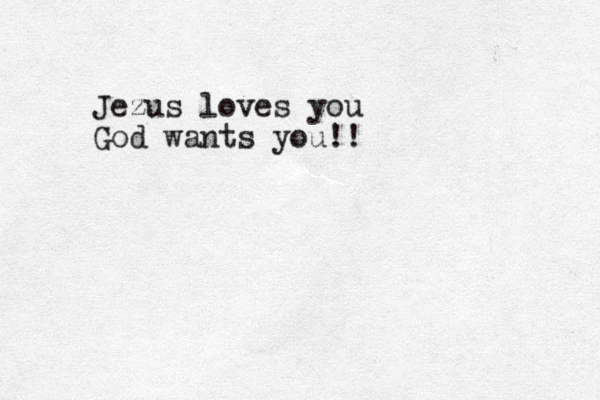 Jezus loves you
God wants you!!